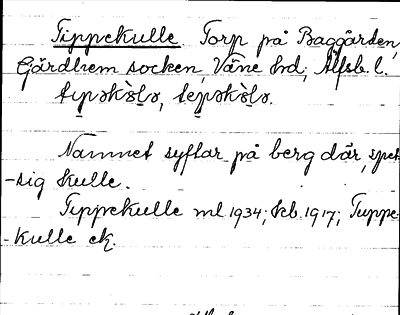 Tippekulle Torp på Baggården,
Gärdhem socken, Väne hd, Älfsb. l.
tɩpəkòlə, tepəkòlə.
Namnet syftar på berg där, spet-
-sig kulle.
Tippekulle ml 1934; kb. 1917; Tuppe-
-kulle ek.